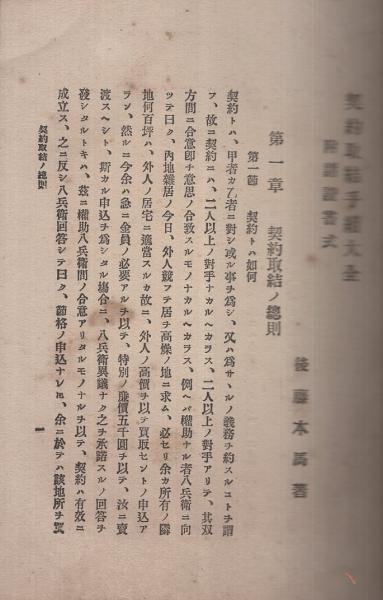 契約取結手續大全
附諸證書式
後藤本馬著
第一章　契約取結ノ總則
第一節　契約トハ如何
契約トハ、甲者カ乙者ニ對シ或ル事ヲ爲シ、又ハ爲サヽルノ義務ヲ約スルコトヲ謂
フ、故ニ契約ニハ、二人以上ノ對手ナカルヘカラス、二人以上ノ對手アリテ、其双
方間ニ合意即チ意思ノ合致スルモノナカルヘカラス、例ヘハ權助ナル者八兵衛ニ向
ツテ曰ク、内地雜居ノ今日、外人競フテ居ヲ高燥ノ地ニ求ム、必セリ余カ所有ノ
地何百坪ハ、外人ノ居宅ニ適當スルカ故ニ、外人ノ高價ヲ以テ買取セントノ申込ア
ラン、然ルニ今余ハ急ニ金員ノ必要アルヲ以テ、特別ノ廉價五千圓ヲ以テ、汝ニ賣
渡スヘシト、斯カル申込ヲ爲シタル塲合ニ、八兵衛異議ナク之ヲ承諾スルノ回答ヲ
發シタルトキハ、茲ニ權助八兵衛間ノ合意アリタルモノナルヲ以テ、契約ハ有効ニ
成立ス、之ニ反シ八兵衛回答シテ曰ク、節格ノ申込ナレ𪜈、余ニ於テハ該地所ヲ買
契約取結ノ總則
一